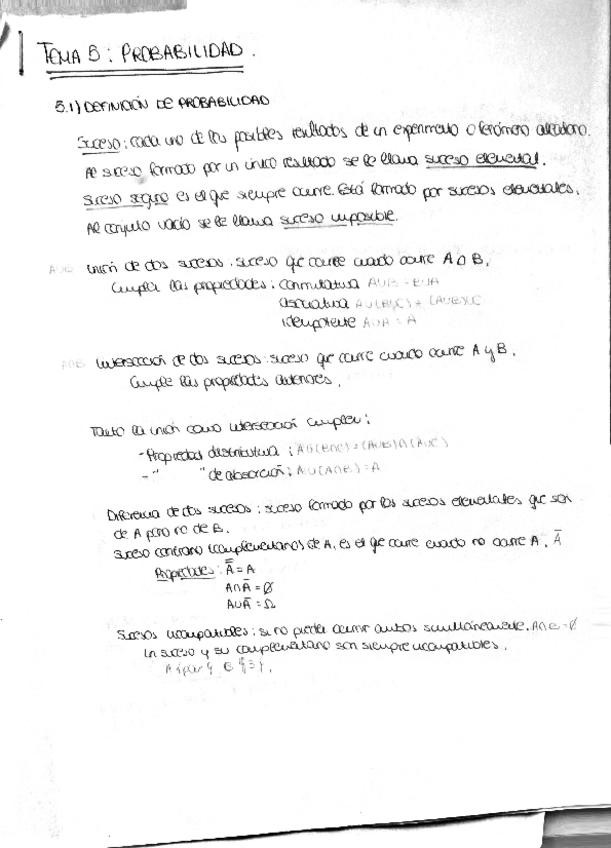 TEMA 5: PROBABILIDAD.
5.1) DEFINICIÓN DE PROBABILIDAD
Suceso: cada uno de los posibles resultados de un experimento o fenómeno aleatorio.
Al suceso formado por un único resultado se le llama suceso elemental.
Suceso seguro es el que siempre ocurre. Está formado por sucesos elementales.
Al conjunto vacío se le llama suceso imposible.
AUB Unión de dos sucesos: suceso que ocurre cuando ocurre A o B.
Cumple las propiedades: conmutativa AUB = BUA
asociativa
idempotente AUA = A
A∩B Intersección de dos sucesos: suceso que ocurre cuando ocurre A y B.
Cumple las propiedades anteriores.
Tanto la unión como intersección cumplen:
- Propiedad distributiva: AU(B∩C) = (AUB)∩(AUC)
- " " de absorción: AU(A∩B) = A
Diferencia de dos sucesos: suceso formado por los sucesos elementales que son
de A pero no de B.
Suceso contrario (complementarios) de A, es el que ocurre cuando no ocurre A. Ā
Propiedades: A̿ = A
A∩Ā = Ø
AUĀ = Ω
Sucesos incompatibles: si no pueden ocurrir ambos simultáneamente. A∩B = Ø
Un suceso y su complementario son siempre incompatibles.